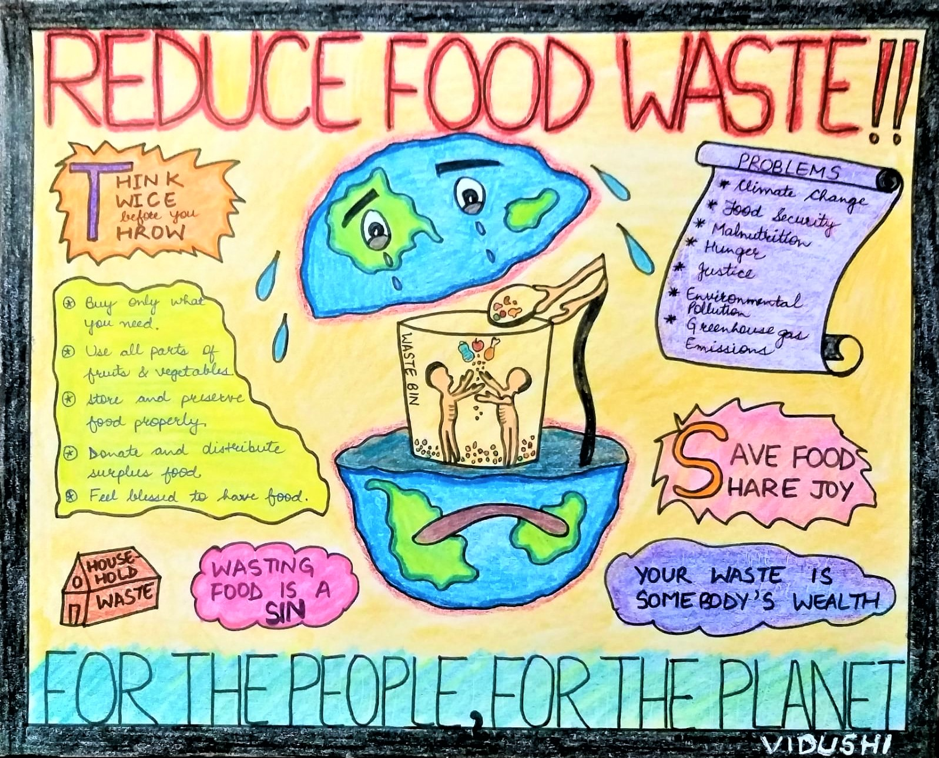 REDUCE FOOD WASTE!!
THINK
TWICE
before you
THROW
PROBLEMS
* Climate Change
* Food Security
* Malnutrition
* Hunger
* Justice
* Environmental
Pollution
* Greenhouse gas
Emissions
WASTE BIN
Buy only what
you need.
Use all parts of
fruits & vegetables
Store and preserve
food properly.
Donate and distribute
surplus food
Feel blessed to have food.
SAVE FOOD
SHARE JOY
HOUSE
HOLD
WASTE
WASTING
FOOD IS A
SIN
YOUR WASTE IS
SOMEBODY'S WEALTH
FOR THE PEOPLE, FOR THE PLANET
VIDUSHI